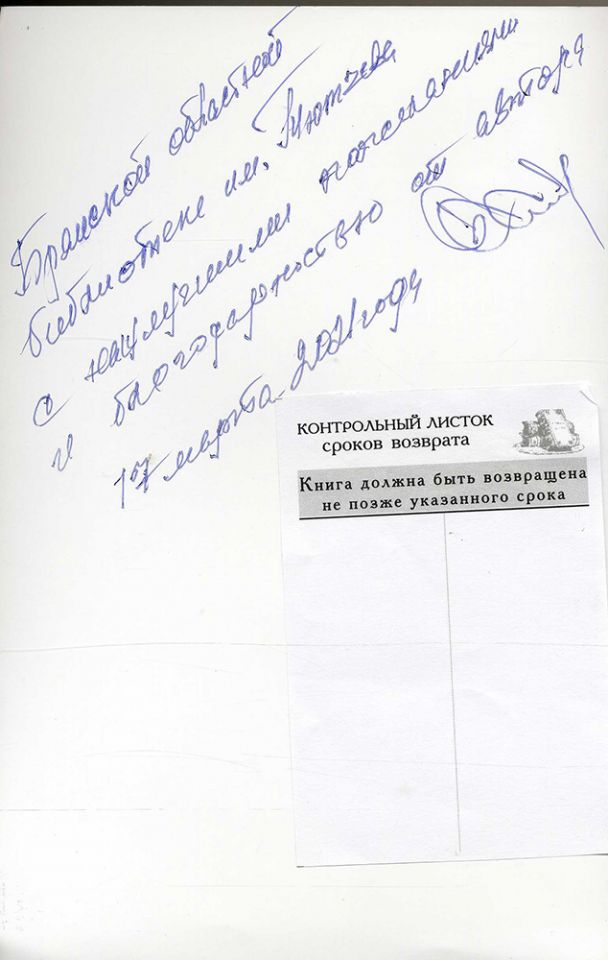 Брянской областной
библиотеке им. Тютчева
с наилучшими пожеланиями
и благодарностью от автора
17 марта 2021 году
КОНТРОЛЬНЫЙ ЛИСТОК
СРОКОВ ВОЗВРАТА
Книга должна быть возвращена
не позже указанного срока